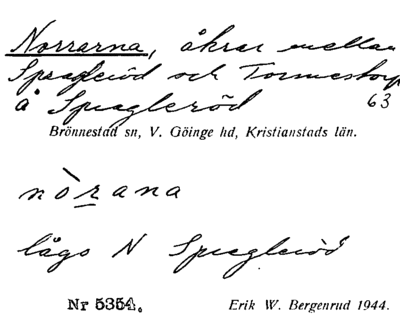 Norrarna, åkrar mellan
Spragleröd och Tormestorp
å Spragleröd 63
Brönnestad sn, V. Göinge hd, Kristianstads län.
nòrana
lågo N Spragleröd
Nr 5354. Erik W. Bergenrud 1944.